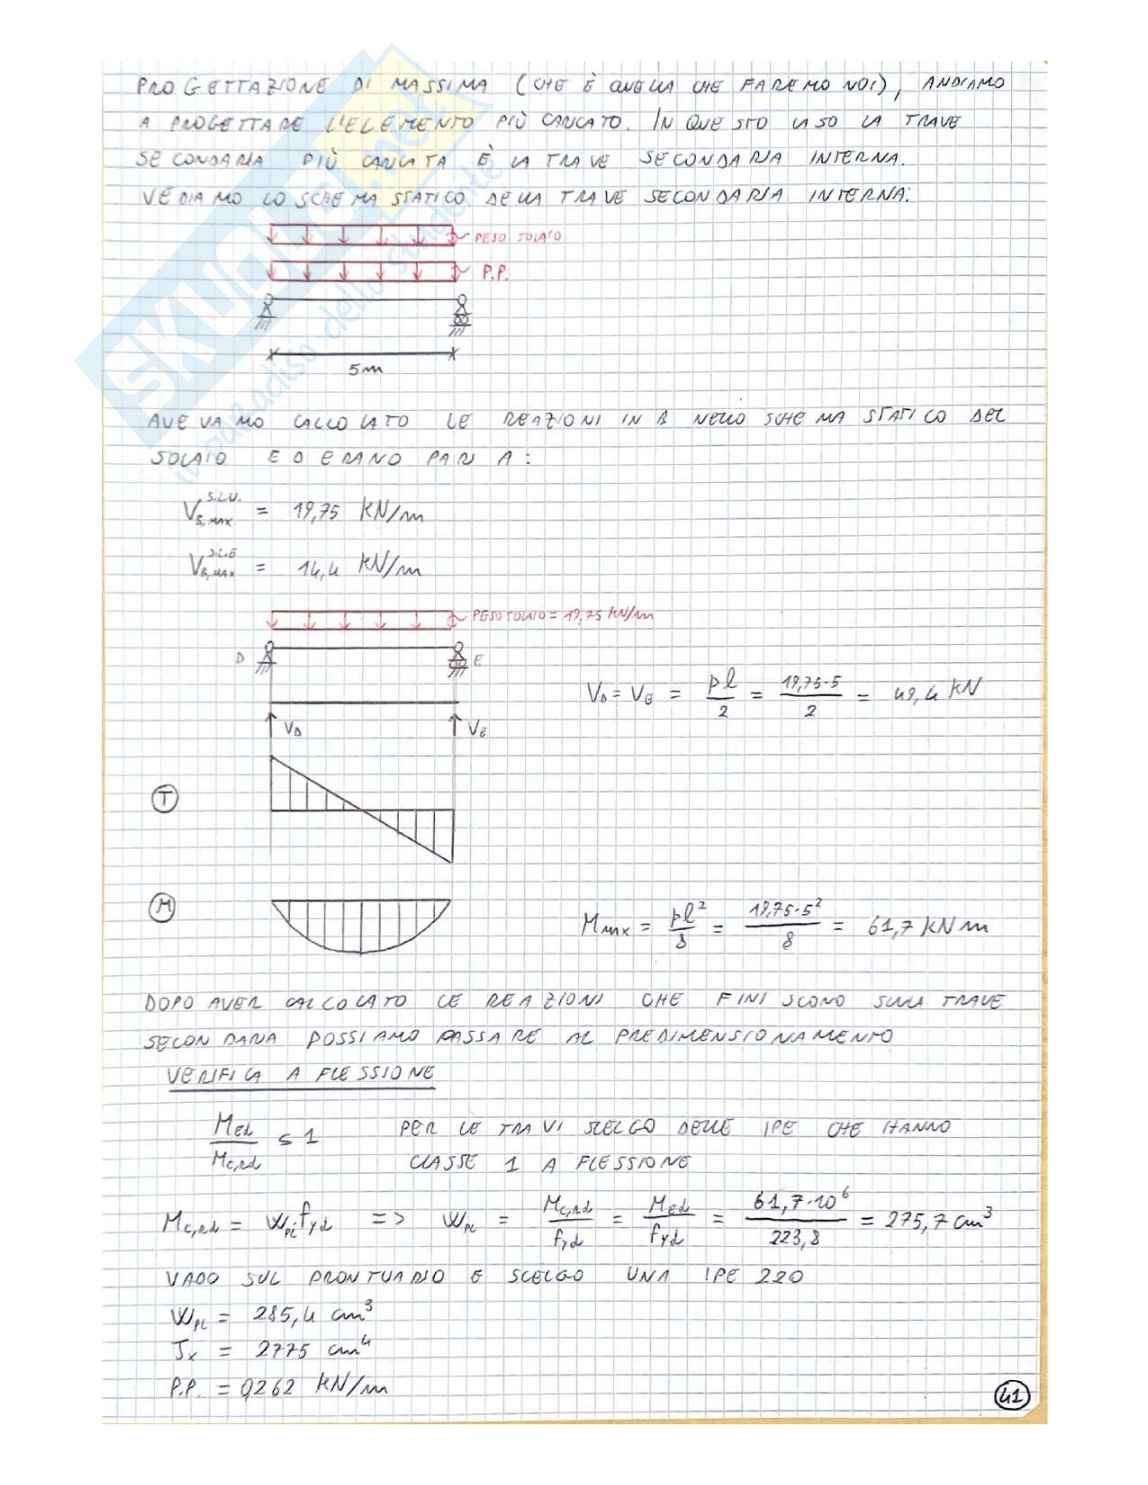 PROGETTAZIONE DI MASSIMA (CHE È QUELLA CHE FAREMO NOI), ANDIAMO
A PROGETTARE L'ELEMENTO PIÙ CARICATO. IN QUESTO CASO LA TRAVE
SECONDARIA PIÙ CARICATA È LA TRAVE SECONDARIA INTERNA.
VEDIAMO LO SCHEMA STATICO DELLA TRAVE SECONDARIA INTERNA:
PESO SOLAIO
P.P.
5m
AVEVAMO CALCOLATO LE REAZIONI IN B NELLO SCHEMA STATICO DEL
SOLAIO ED ERANO PARI A:
V_B,MAX^S.L.U. = 19,75 KN/m
V_B,MAX^S.L.E = 14,4 KN/m
PESO SOLAIO = 19,75 KN/m
D E
V_D = V_E = pl/2 = 19,75·5/2 = 49,4 KN
V_D V_E
T
M
M_max = pl²/8 = 19,75·5²/8 = 61,7 KN m
DOPO AVER CALCOLATO LE REAZIONI CHE FINISCONO SULLA TRAVE
SECONDARIA POSSIAMO PASSARE AL PREDIMENSIONAMENTO
VERIFICA A FLESSIONE
M_Ed/M_c,Rd ≤ 1 PER LE TRAVI SCELGO DELLE IPE CHE HANNO
CLASSE 1 A FLESSIONE
M_c,Rd = W_pl·f_yd => W_pl = M_c,Rd/f_yd = M_Ed/f_yd = 61,7·10⁶/223,8 = 275,7 cm³
VADO SUL PRONTUARIO E SCELGO UNA IPE 220
W_PL = 285,4 cm³
J_x = 2775 cm⁴
P.P. = 0,262 KN/m
41
SKUOLA.net
il paradiso dello studente